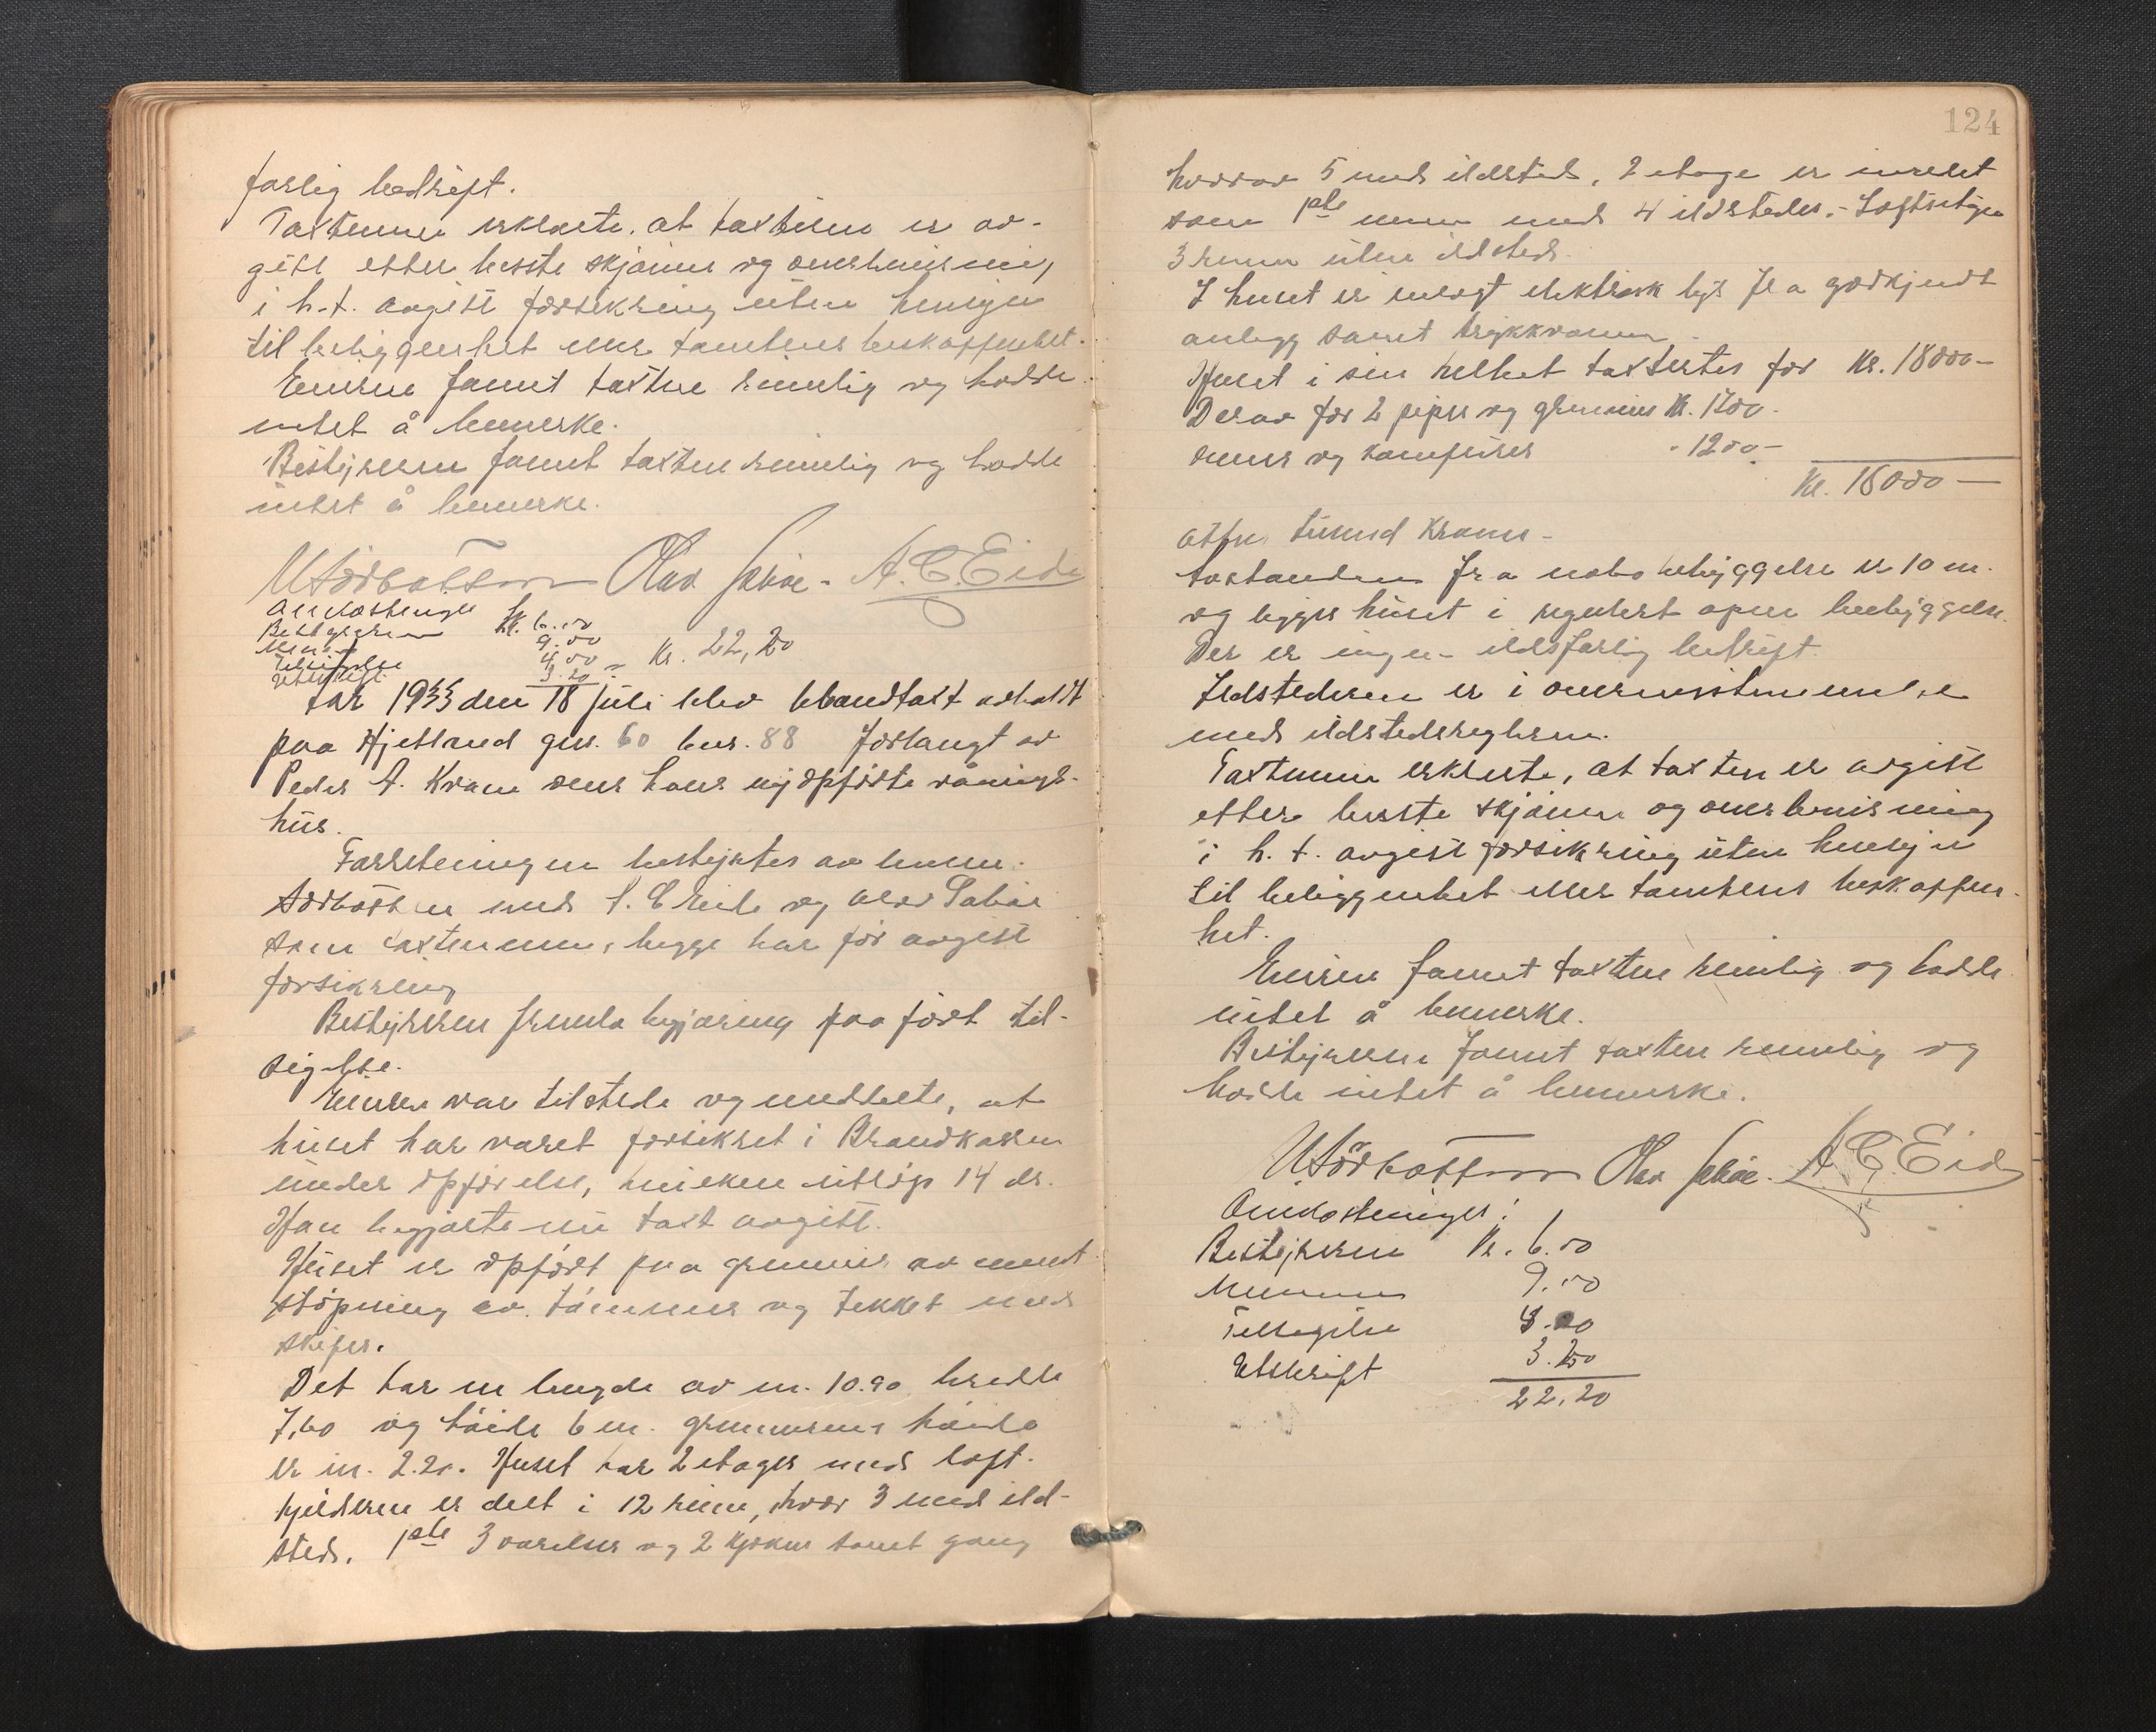 farlig bedrift.
Takstmenn erklærte, at taxten er av-
gitt etter beste skjønn og overbevisning,
i h.t. avgitt forsikring uten hensyn
til beliggenhet eller tomtens beskaffenhet.
Eieren fannt taxten rimelig og hadde
intet å bemerke.
Bestyreren fannt taxten rimelig og hadde
intet å bemerke.
Olav A.C. Eide
Omkostninger
Bestyreren kr. 6.00
Menn 9.00
Tilsigelse 4.00 = Kr. 22,20
Utskrift 3.20
Aar 1933 den 18 juli blev brandtakst avholdt
paa Hjellrud gnr. 60 bnr. 88 forlangt av
Peder A. Kvam over hans nyopførte vånings-
hus.
Forretningen bestyrtes av lensm.
med A. C. Eide og Olav
som taxtmenn, begge har før avgitt
forsikring
Bestyreren fremla begjæring paaført til-
sigelse.
Eieren var tilstede og meddelte, at
huset har været forsikret i Brandkassen
under opførelse, hvilken utløp 14 ds.
Han begjærte nu takst avgitt.
Huset er opført paa grunnmur av cement
støpning av tømmer og tekket med
skifer.
Det har en lengde av m. 10.90 bredde
7,60 og høide 6 m. grunnmurens høide
er m. 2.20. Huset har 2 etager med loft.
Kjelderen er delt i 12 rum, hvor 3 med ild-
sted. 1ste 3 værelser og 2 kjøkken samt gang
124
hvorav 5 med ildsted. 2 etage er innredet
som 1ste med 4 ildsteder. - Loftsetagen
3 rum uten ildsted.
I huset er innlagt elektrisk lys fra godkjendt
anlegg samt trykkvann.
Huset i sin helhet taxtertes for Kr. 18000-
Derav for 2 piper og grunnmur Kr. 1700.
ovner og komfyrer - 1200-
Kr. 18000-
atten tusend Kroner -
Avstanden fra nabobebyggelse er 10 m.
og ligger huset i regulert åpen bebyggelse.
Der er ingen ildsfarlig bedrift.
Ildstederne er i overensstemmelse
med ildstedsreglerne.
Taxtmenn erklærte, at taxten er avgitt
etter beste skjønn og overbevisning
i h.t. avgitt forsikring uten hensyn
til beliggenhet eller tomtens beskaffen-
het.
Eieren fannt taxten rimelig og hadde
intet å bemerke.
Bestyreren fannt taxten rimelig og
hadde intet å bemerke.
Olav A C Eide
Omkostninger:
Bestyreren Kr. 6.00
Mennene 9.00
Tilsigelse 4.00
Utskrift 3.20
22.20